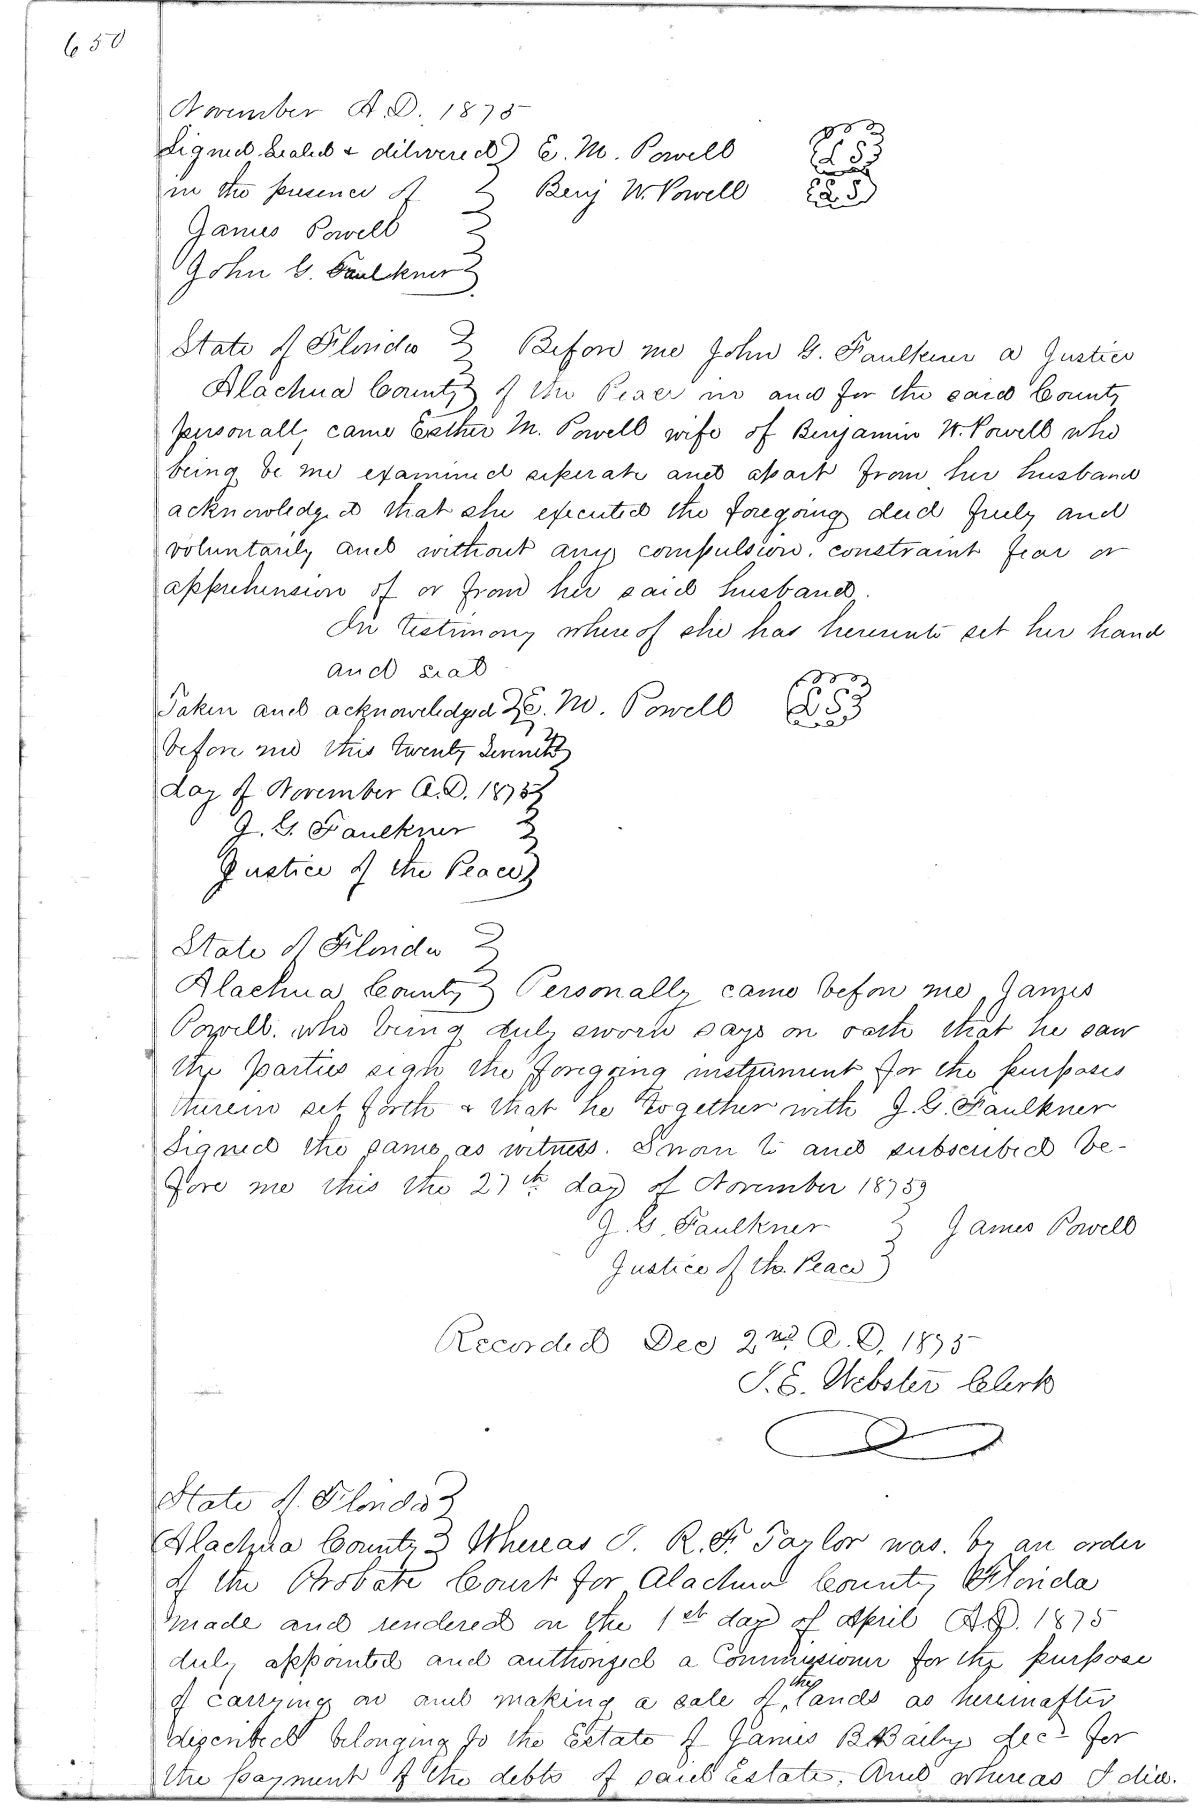 650
November A.D. 1875
Signed Sealed & delivered) E. M. Powell LS
in the presence of Benj W. Powell LS
James Powell
John G. Faulkner
State of Florida Before me John G. Faulkner a Justice
Alachua County of the Peace in and for the said County
personally came Esther M. Powell wife of Benjamin W. Powell who
being be me examined seperate and apart from her husband
acknowledged that she executed the foregoing deed freely and
voluntarily and without any compulsion, constraint fear or
apprehension of or from her said husband.
In testimony whereof she has hereunto set her hand
and seal
Taken and acknowledged E. M. Powell LS
before me this twenty Seventh
day of November A.D. 1875
J. G. Faulkner
Justice of the Peace
State of Florida
Alachua County Personally came before me James
Powell. who being duly sworn says on oath that he saw
the parties sign the foregoing instrument for the purposes
therein set forth & that he together with J. G. Faulkner
Signed the same as witness. Sworn to and subscribed be-
fore me this the 27th day of November 1875
J. G. Faulkner James Powell
Justice of the Peace
Recorded Dec 2nd A.D. 1875
J. E. Webster Clerk
State of Florida
Alachua County Whereas I. R. F. Taylor was. by an order
of the Probate Court for Alachua County Florida
made and rendered on the 1st day of April A.D. 1875
duly appointed and authorized a Commissioner for the purpose
of carrying on and making a sale of the lands as hereinafter
described belonging to the Estate of James B. Baily decd for
the payment of the debts of said Estate. And whereas I did.